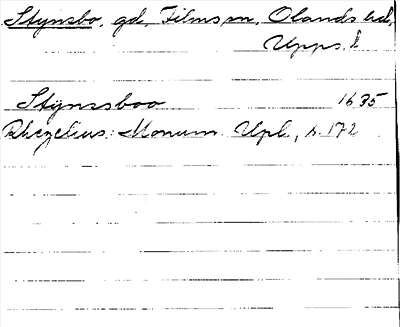 Stynsbo, gd, Films sn, Olands hd,
Upps. l
Stÿnssboo 1635
Rhezelius: Monum. Upl., s. 172